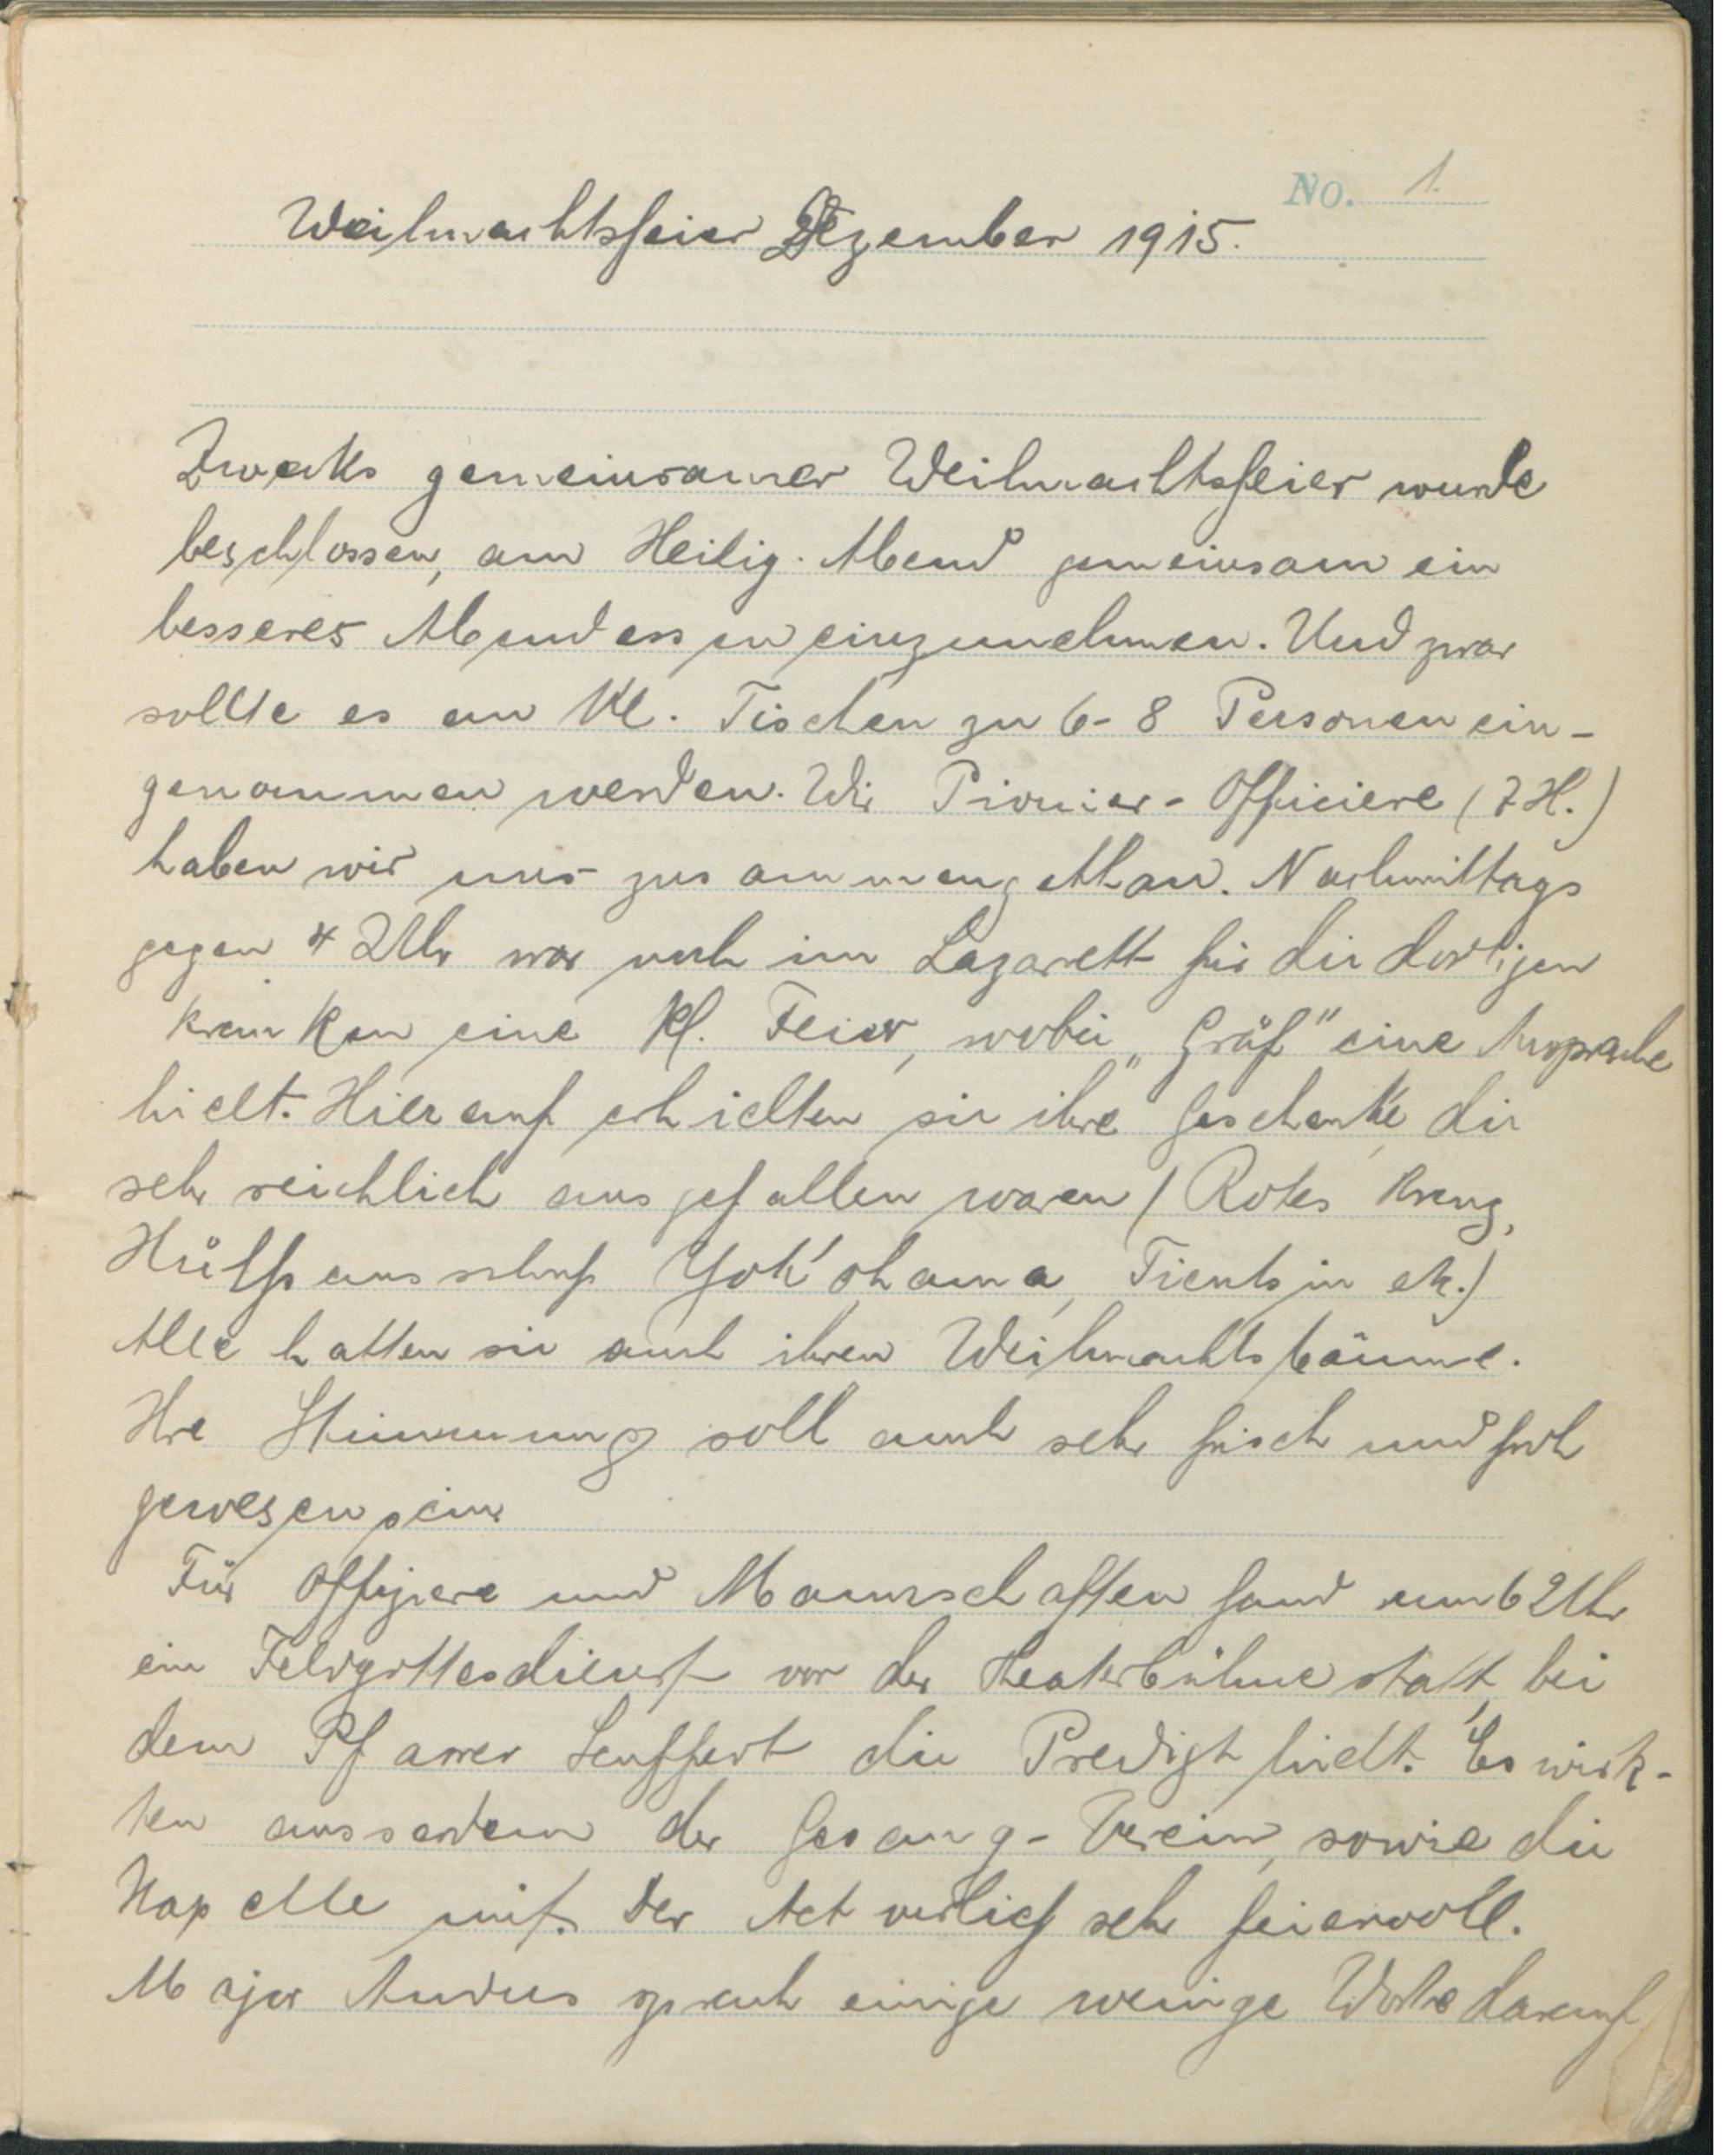 No. 1.
Weihnachtsfeier Dezember 1915.
Zwecks gemeinsamer Weihnachtsfeier wurde
beschlossen, am Heilig. Abend gemeinsam ein
besseres Abendessen einzunehmen. Und zwar
sollte es an kl. Tischen zu 6-8 Personen ein-
genommen werden. Wir Pionier-Officiere (7 H.)
haben wir uns zusammengethan. Nachmittags
gegen 4 Uhr war noch im Lazarett für die dortigen
Kranken eine kl. Feier, wobei „Gräf" eine Ansprache
hielt. Hierauf erhielten sie ihre Geschenke, die
sehr reichlich ausgefallen waren (Rotes Kreuz,
Hülfsausschuß Yokohama, Tientsin etc.)
Alle hatten sie auch ihren Weihnachtsbäume.
Ihre Stimmung soll auch sehr frisch und froh
gewesen sein.
Für Offiziere und Mannschaften fand um 6 Uhr
ein Feldgottesdienst vor der Theaterbühne statt, bei
dem Pfarrer Senffert die Predigt hielt. Es wirk-
ten ausserdem der Gesang-Verein, sowie die
Kapelle mit. Der Act verlief sehr feiervoll.
Major Anders sprach einige wenige Worte darauf